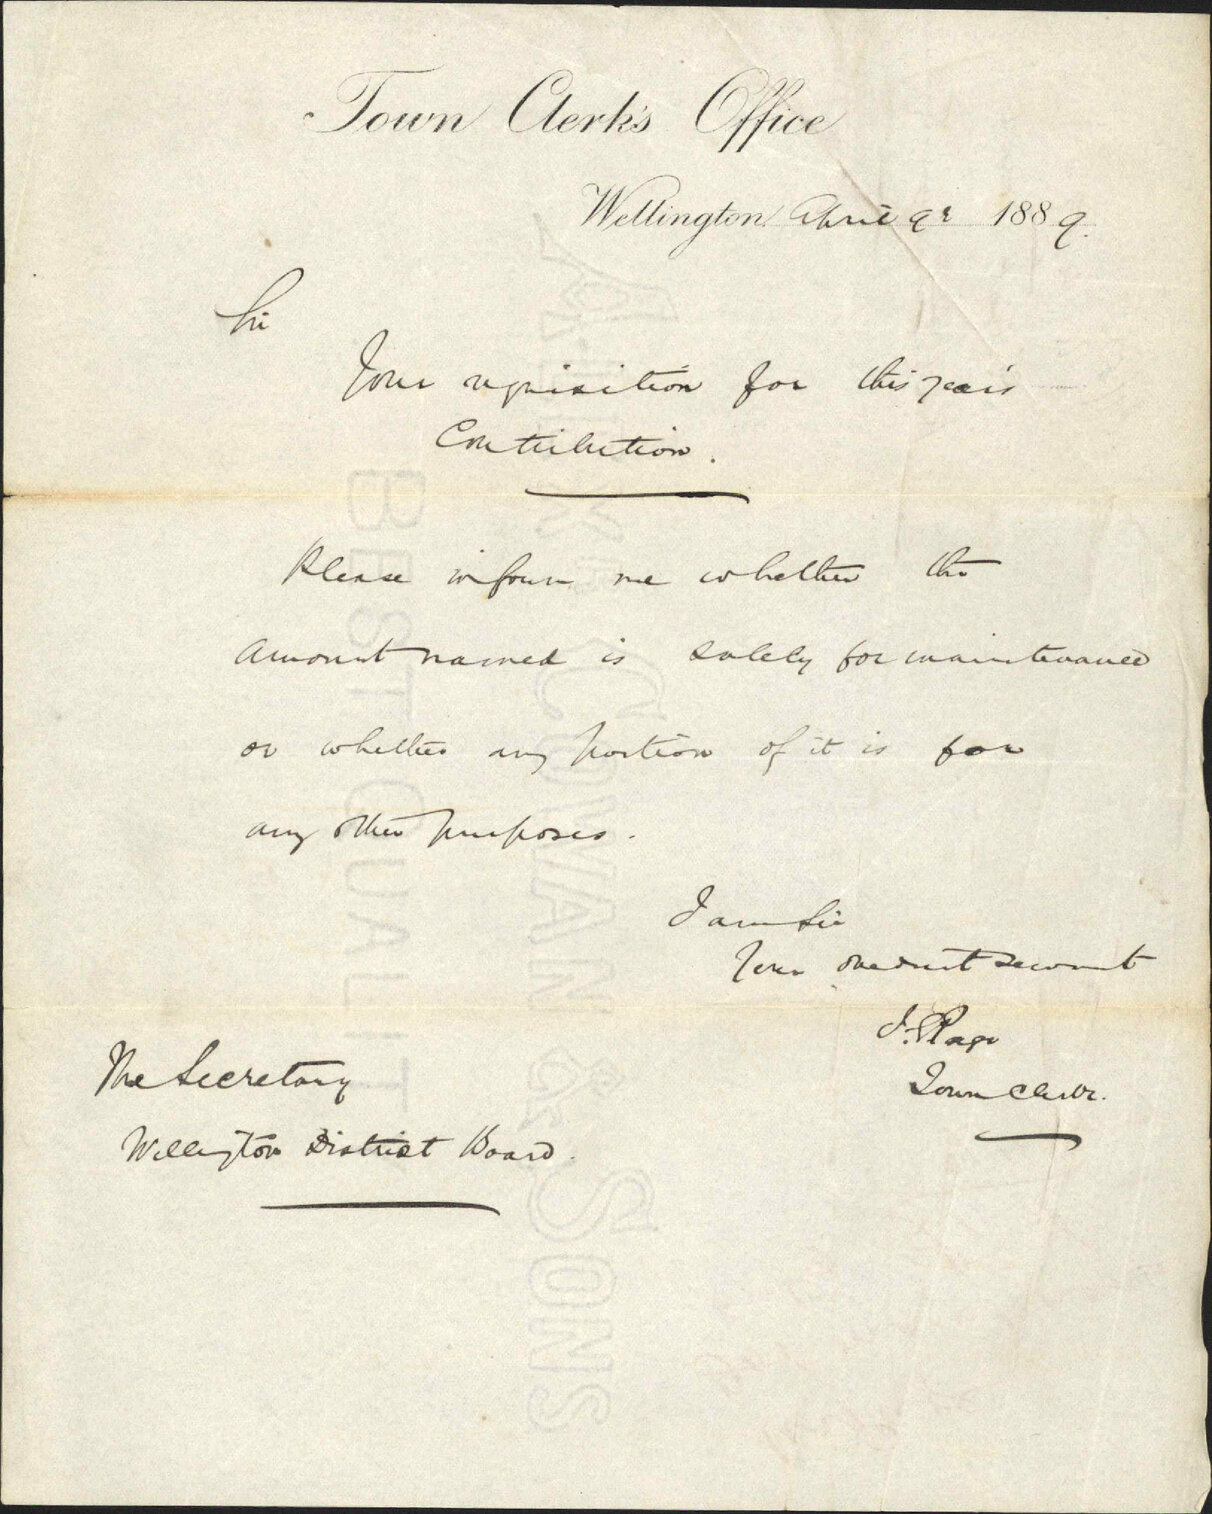 Town Clerk's Office
Wellington April 9 1889.
Sir
Your requisition for this year's
Contribution.
Please inform me whether the
amount named is solely for maintenance
or whether any portion of it is for
any other purposes.
I am Sir
Your obedient servant
J. Page
Town Clerk.
The Secretary
Wellington District Board.
ALEX COWAN & SONS
BEST QUALITY